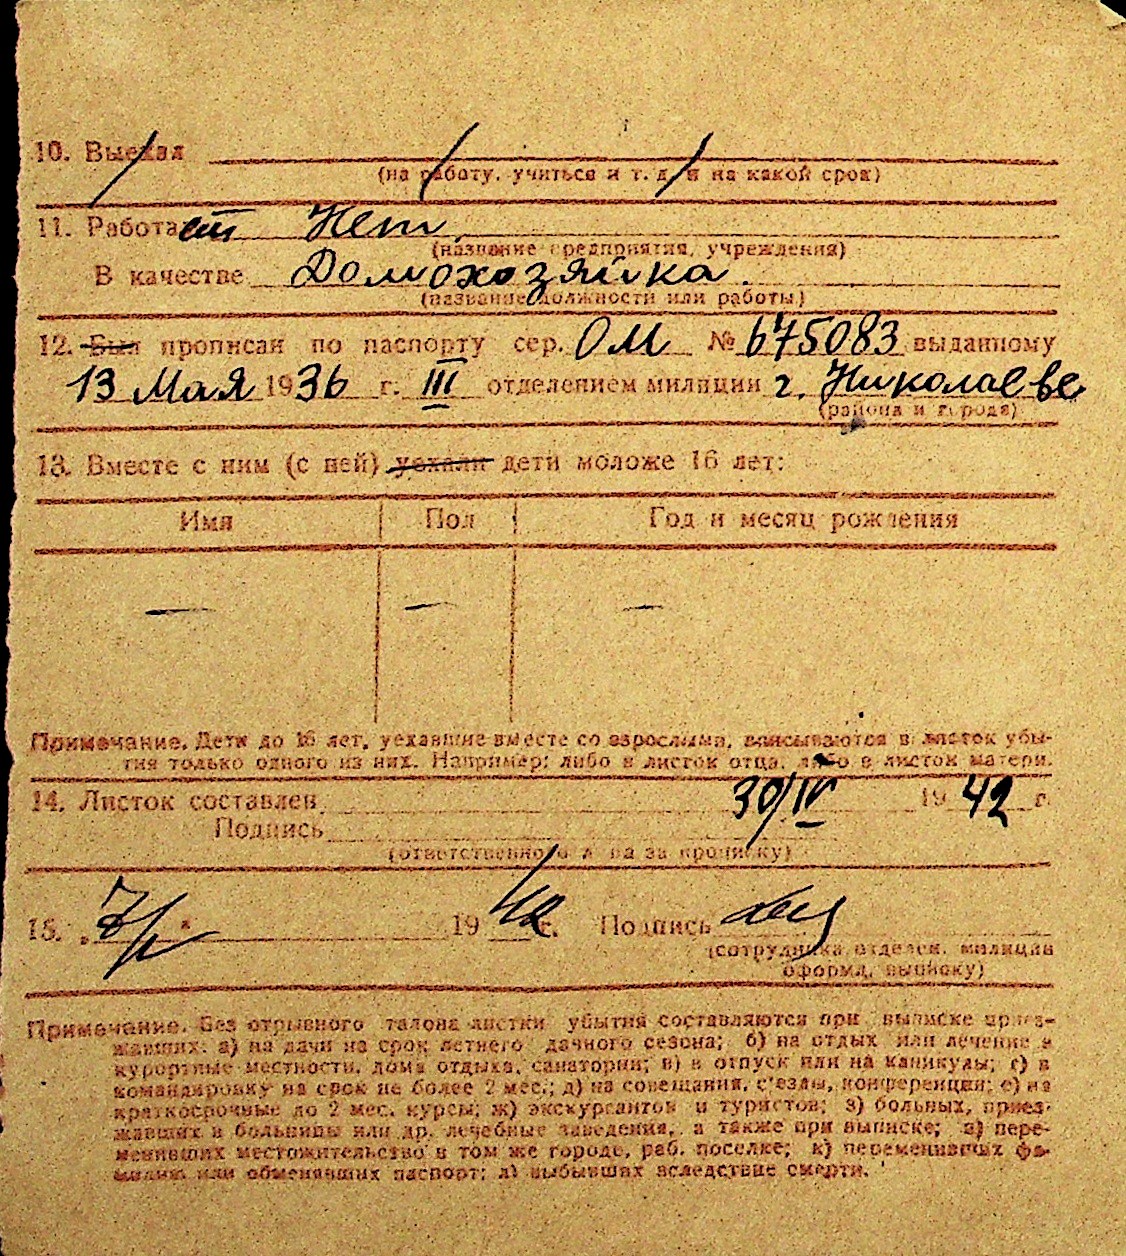 10. Выехал
(на работу, учиться и т. д. и на какой срок)
11. Работает Нет.
(название предприятия, учреждения)
В качестве Домохозяйка.
(название должности или работы)
12. Был прописан по паспорту сер. ОМ № 675083 выданному
13 Мая 1936 г. III отделением милиции г. Николаеве
(района и города)
13. Вместе с ним (с ней) уехали дети моложе 16 лет:
Имя Пол Год и месяц рождения
— — —
Примечание. Дети до 16 лет, уехавшие вместе со взрослыми, вписываются в листок убы-
тия только одного из них. Например: либо в листок отца, либо в листок матери.
14. Листок составлен 30/IV 1942 г.
Подпись
(ответственного лица за прописку)
15. 1942 г. Подпись
(сотрудника отделен. милиции
оформл. выписку)
Примечание. Без отрывного талона листки убытия составляются при выписке приез-
жавших: а) на дачи на срок летнего дачного сезона; б) на отдых или лечение в
курортные местности, дома отдыха, санатории; в) в отпуск или на каникулы; г) в
командировку на срок не более 2 мес.; д) на совещания, с'езды, конференции; е) на
краткосрочные до 2 мес. курсы; ж) экскурсантов и туристов; з) больных, приез-
жавших в больницы или др. лечебные заведения, а также при выписке; и) пере-
менивших местожительство в том же городе, раб. поселке; к) переменивших фа-
милию или обменявших паспорт; л) выбывших вследствие смерти.